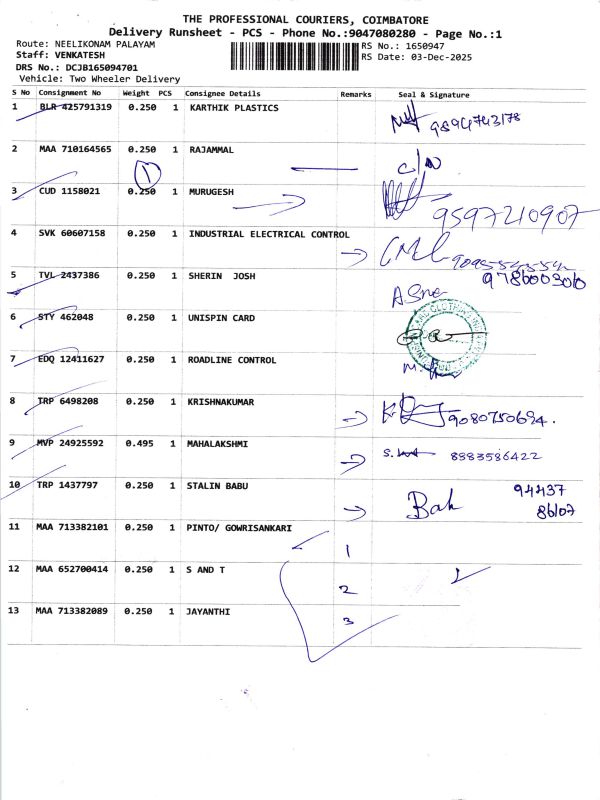 THE PROFESSIONAL COURIERS, COIMBATORE
Delivery Runsheet - PCS - Phone No.:9047080280 - Page No.:1
Route: NEELIKONAM PALAYAM
RS No.: 1650947
Staff: VENKATESH
RS Date: 03-Dec-2025
DRS No.: DCJB165094701
Vehicle: Two Wheeler Delivery
S No Consignment No Weight PCS Consignee Details Remarks Seal & Signature
1 BLR 425791319 0.250 1 KARTHIK PLASTICS
2 MAA 710164565 0.250 1 RAJAMMAL
1
3 CUD 1158021 0.250 1 MURUGESH 9597210907
4 SVK 60607158 0.250 1 INDUSTRIAL ELECTRICAL CONTROL
5 TVL 2437386 0.250 1 SHERIN JOSH
6 STY 462048 0.250 1 UNISPIN CARD
7 EDQ 12411627 0.250 1 ROADLINE CONTROL
8 TRP 6498208 0.250 1 KRISHNAKUMAR
9 MVP 24925592 0.495 1 MAHALAKSHMI 8883586422
10 TRP 1437797 0.250 1 STALIN BABU 94437
86107
11 MAA 713382101 0.250 1 PINTO/ GOWRISANKARI
1
12 MAA 652700414 0.250 1 S AND T
2
13 MAA 713382089 0.250 1 JAYANTHI
3